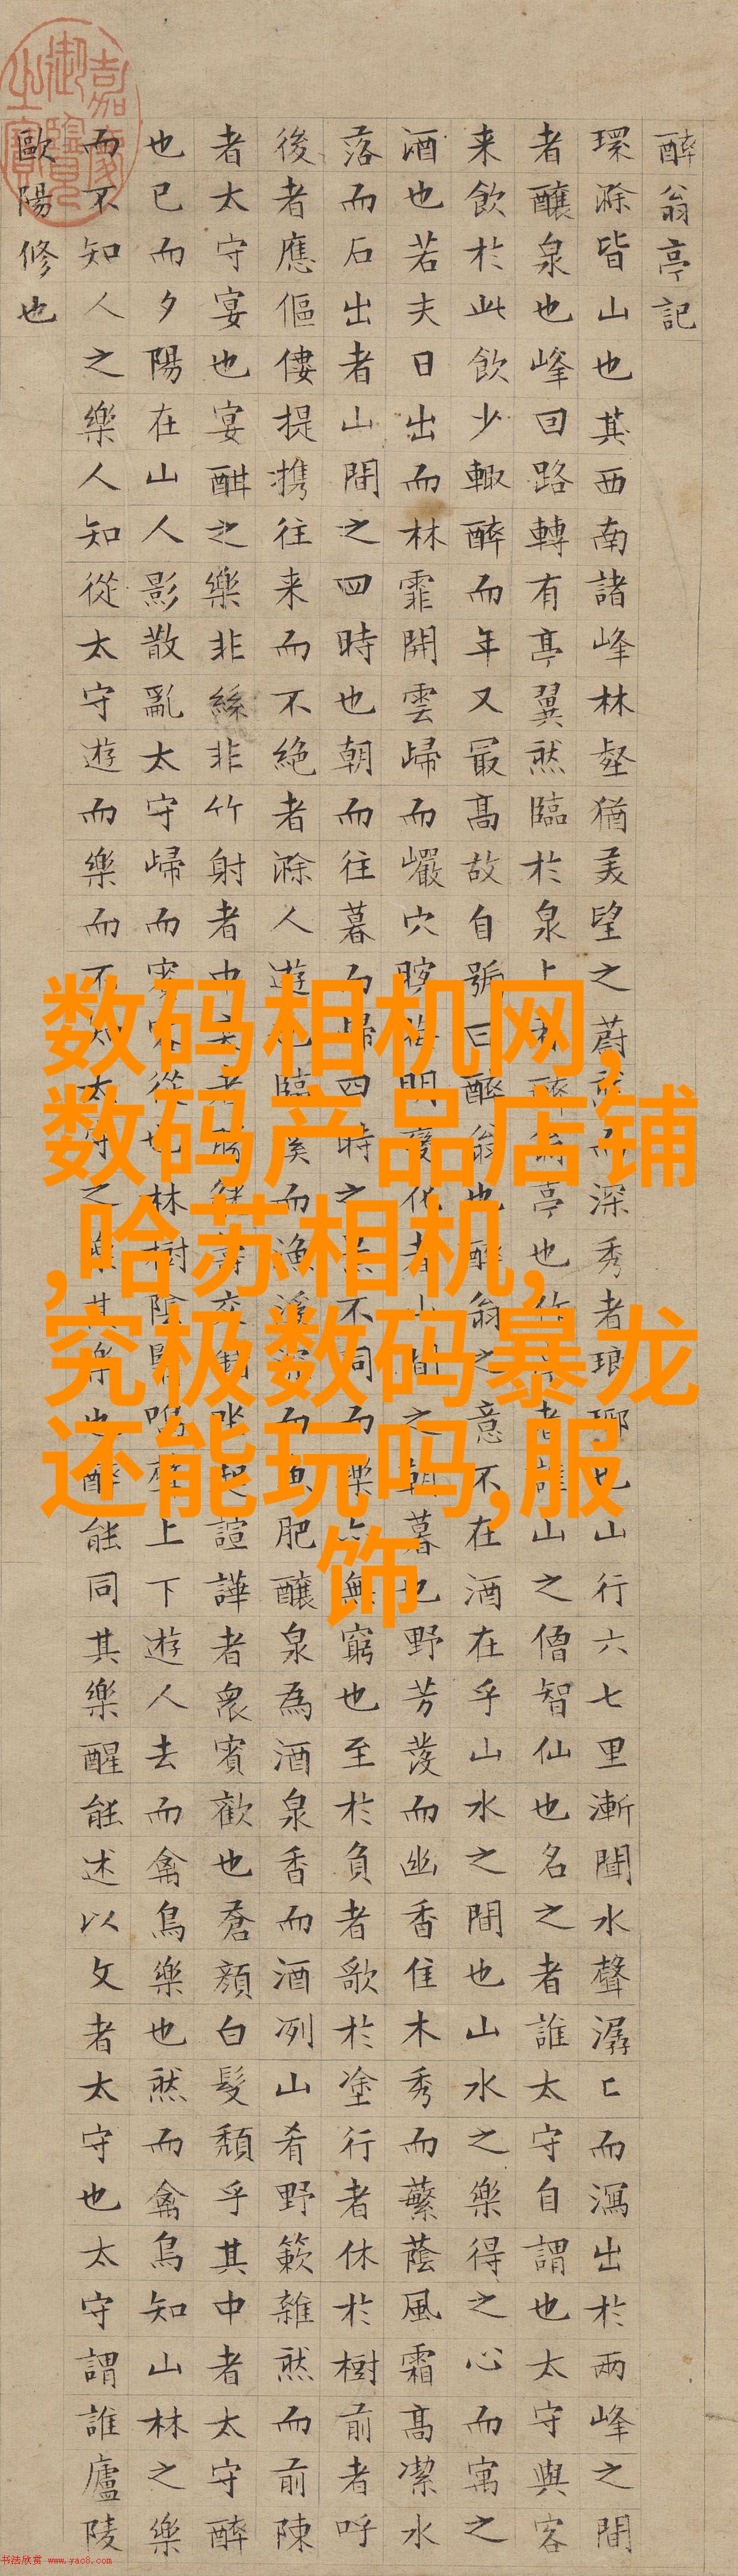 醉翁亭記
環滁皆山也其西南諸峰林壑猶美望之蔚然而深秀者琅琊也山行六七里漸聞水聲潺〻而瀉出於兩峰之間
者醸泉也峰回路轉有亭翼然臨於泉上者醉翁亭也作亭者誰山之僧智仙也名之者誰太守自謂也太守與客
来飲於此飲少輙醉而年又最高故自號曰醉翁也醉翁之意不在酒在乎山水之間也山水之樂得之心而寓之
酒也若夫日出而林霏開雲歸而巖穴暝晦明變化者山間之朝暮也野芳發而幽香佳木秀而繁蔭風霜高潔水
落而石出者山間之四時也朝而往暮而歸四時之景不同而樂亦無窮也至於負者歌於塗行者休於樹前者呼
後者應傴僂提携往来而不絶者滁人遊也臨溪而漁溪深而魚肥醸泉為酒泉香而酒冽山肴野簌雜然而前陳
者太守宴也宴酣之樂非絲非竹射者中奕者勝觥籌交錯坐起諠譁者衆賓歡也蒼顔白髮頹乎其中者太守醉
也已而夕陽在山人影散亂太守歸而賓客從也林樹陰翳鳴聲上下遊人去而禽鳥樂也然而禽鳥知山林之樂
而不知人之樂人知從太守遊而樂而不知太守之樂其樂也醉能同其樂醒能述以文者太守也太守謂誰廬陵
歐陽修也
嘉慶御覽之寶
数码相机网,
数码产品店铺
,哈苏相机,
究极数码暴龙
还能玩吗,服
饰
书法欣赏 www.yac8.com